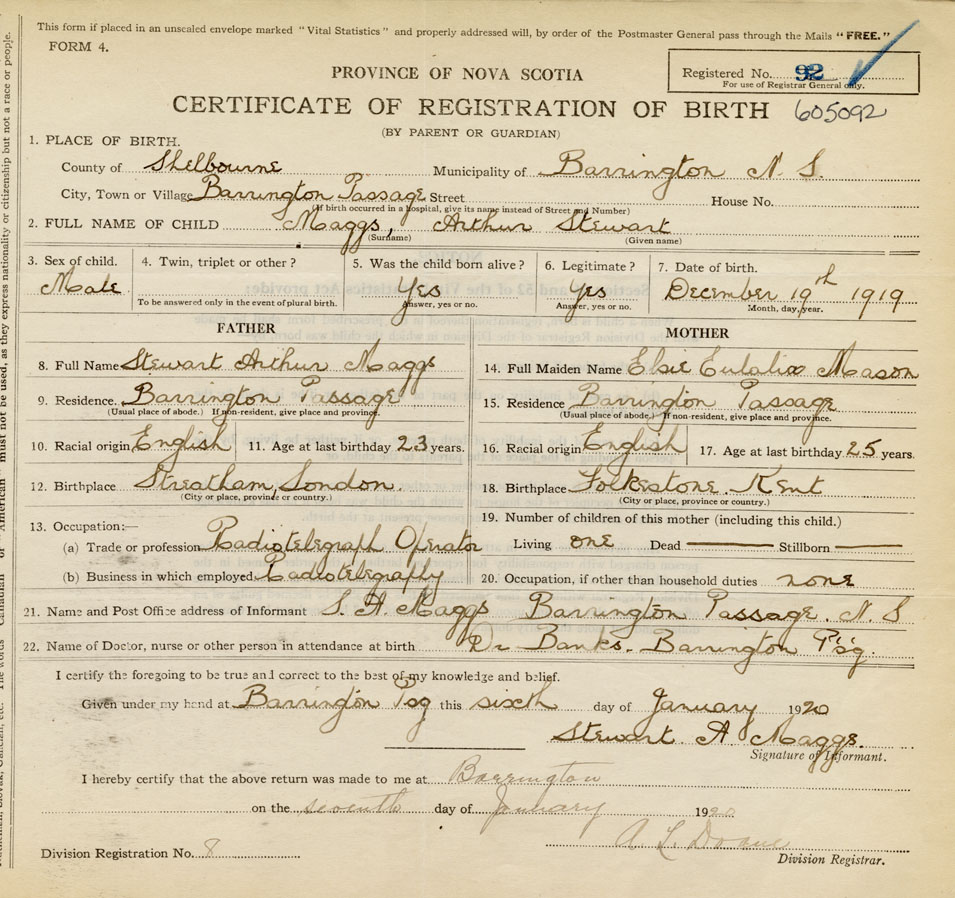 This form if placed in an unsealed envelope marked "Vital Statistics" and properly addressed will, by order of the Postmaster General pass through the Mails "FREE."
FORM 4.
Registered No. 92
For use of Registrar General only.
PROVINCE OF NOVA SCOTIA
CERTIFICATE OF REGISTRATION OF BIRTH 605092
(BY PARENT OR GUARDIAN)
1. PLACE OF BIRTH.
County of Shelbourne Municipality of Barrington N. S.
City, Town or Village Barrington Passage Street House No.
(If birth occurred in a hospital, give its name instead of Street and Number)
2. FULL NAME OF CHILD Maggs, Arthur Stewart
(Surname) (Given name)
3. Sex of child. 4. Twin, triplet or other? 5. Was the child born alive? 6. Legitimate? 7. Date of birth.
Male Yes Yes December 19th 1919
To be answered only in the event of plural birth. Answer, yes or no. Answer, yes or no. Month, day, year.
FATHER MOTHER
8. Full Name Stewart Arthur Maggs
9. Residence. Barrington Passage
(Usual place of abode.) If non-resident, give place and province.
10. Racial origin English 11. Age at last birthday 23 years.
12. Birthplace Streatham, London.
(City or place, province or country.)
13. Occupation:—
(a) Trade or profession Radiotelegraph Operator
(b) Business in which employed Radiotelegraphy
14. Full Maiden Name Elsie Eulalia Mason
15. Residence Barrington Passage
(Usual place of abode.) If non-resident, give place and province.
16. Racial origin English 17. Age at last birthday 25 years.
18. Birthplace Folkestone. Kent
(City or place, province or country.)
19. Number of children of this mother (including this child.)
Living one Dead — Stillborn —
20. Occupation, if other than household duties none
21. Name and Post Office address of Informant S. A. Maggs Barrington Passage. N. S
22. Name of Doctor, nurse or other person in attendance at birth Dr Banks. Barrington Psg.
I certify the foregoing to be true and correct to the best of my knowledge and belief.
Given under my hand at Barrington Psg this sixth day of January 1920
Stewart A Maggs.
Signature of Informant.
I hereby certify that the above return was made to me at Barrington
on the seventh day of January 1920
A L Doane
Division Registration No. 8
Division Registrar.